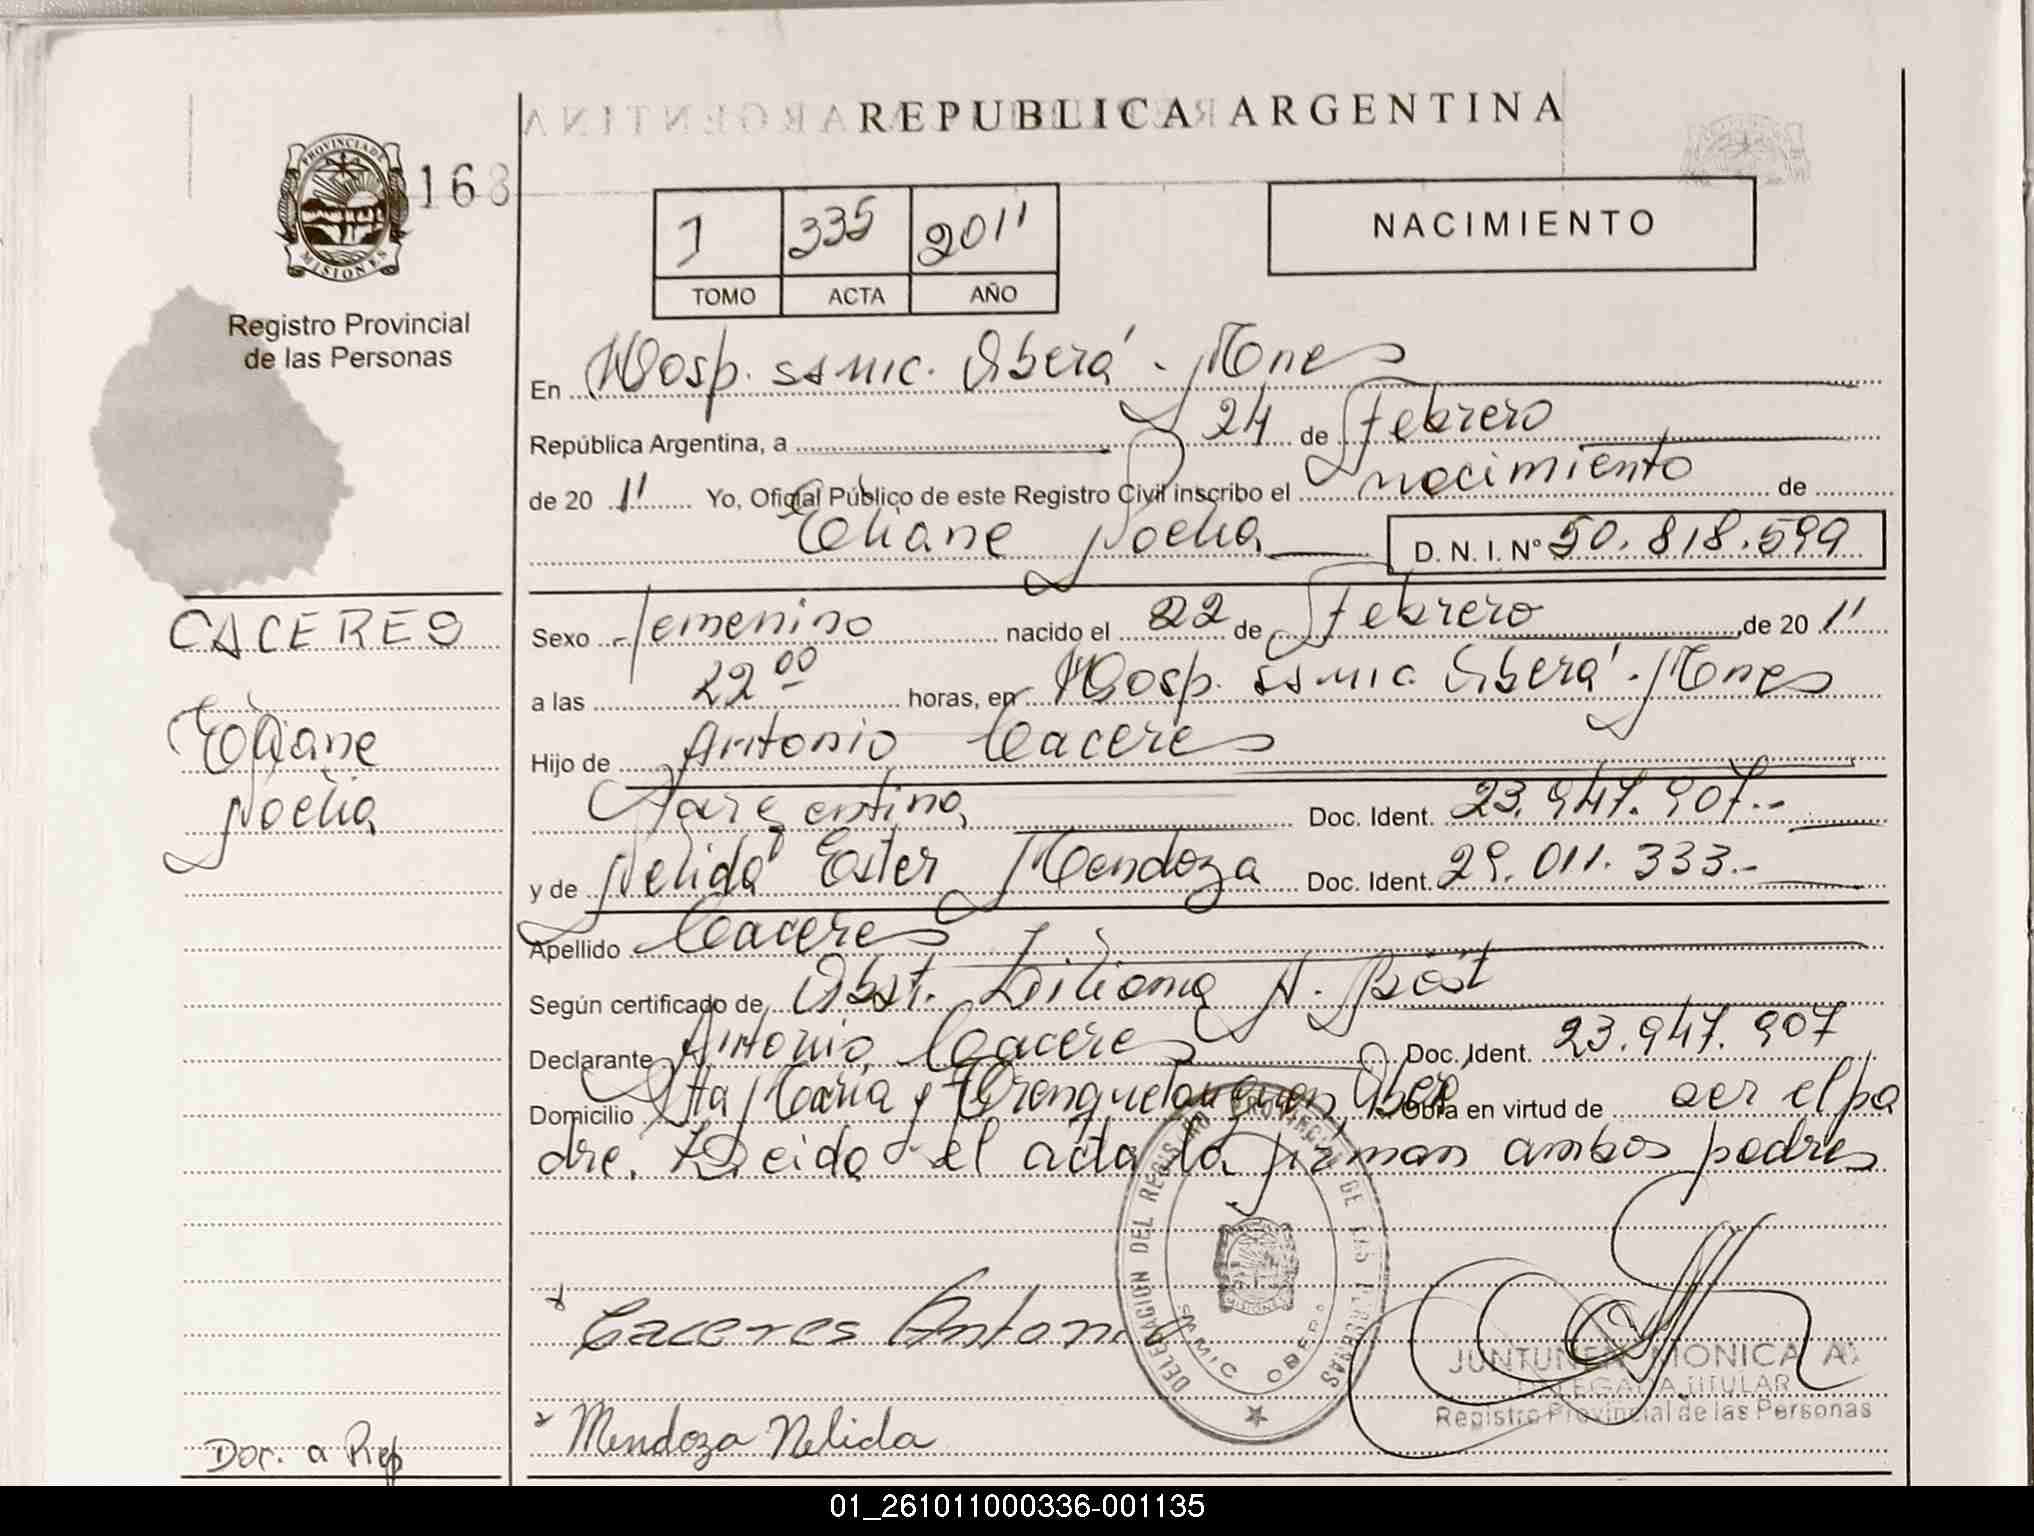 REPUBLICA ARGENTINA
PROVINCIA DE
MISIONES
168
Registro Provincial
de las Personas
1 335 2011
TOMO ACTA AÑO
NACIMIENTO
En Hosp. SSMIC. Oberá - Mnes
República Argentina, a 24 de Febrero
de 20 11 Yo, Oficial Público de este Registro Civil inscribo el nacimiento de
Eliane Noelia D. N. I. Nº 50.818.599
CACERES
Eliane
Noelia
Sexo femenino nacido el 22 de Febrero de 20 11
a las 22 00 horas, en Hosp. SSMIC Oberá - Mnes
Hijo de Antonio Caceres
Argentina Doc. Ident. 23.947.907.-
y de Nelida Ester Mendoza Doc. Ident. 29.011.333.-
Apellido Caceres
Según certificado de Obst. Liliana A. Bast
Declarante Antonio Caceres Doc. Ident. 23.947.907
Domicilio Sta Maria y Trenquelauquen Oberá Obra en virtud de ser el pa
dre. Leida el acta la firman ambos padres
DELEGACION DEL REGISTRO PROVINCIAL DE LAS PERSONAS
SAMIC OBERA
MISIONES
Caceres Antonio
JUNTUNEN MONICA A.
DELEGADA TITULAR
Registro Provincial de las Personas
Mendoza Nelida
Doc. a Rep
01_261011000336-001135